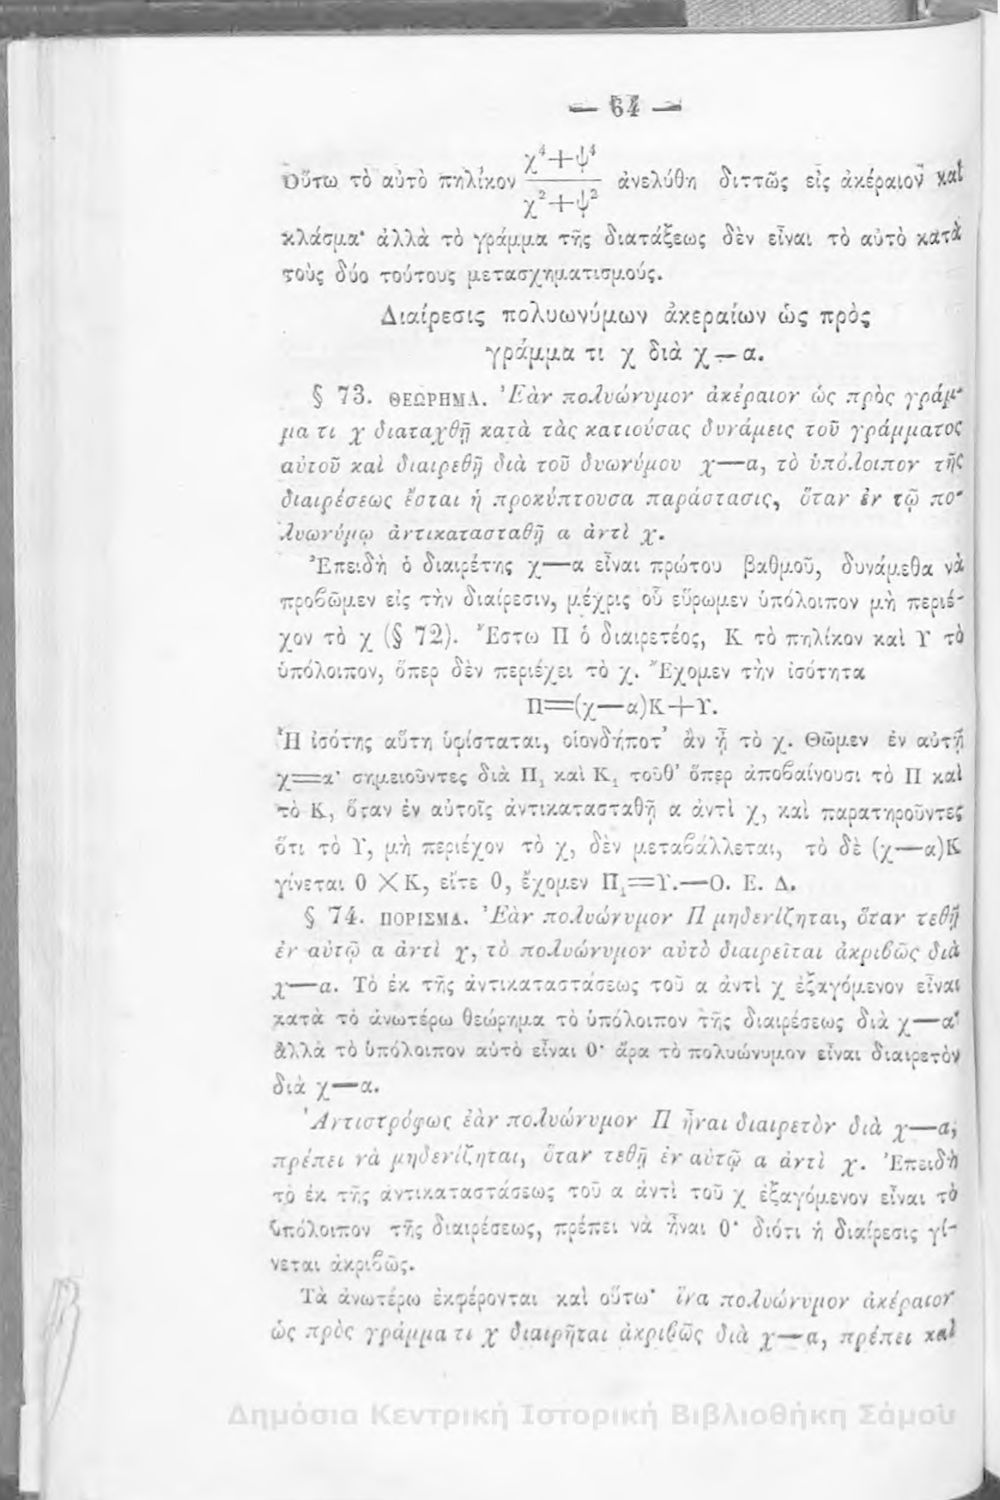 — 64 —
Οὕτω τὸ αὐτὸ πηλίκον χ⁴+ψ⁴ / χ²+ψ² ἀνελύθη διττῶς εἰς ἀκέραιον καὶ
κλάσμα· ἀλλὰ τὸ γράμμα τῆς διατάξεως δὲν εἶναι τὸ αὐτὸ κατὰ
τοὺς δύο τούτους μετασχηματισμούς.
Διαίρεσις πολυωνύμων ἀκεραίων ὡς πρὸς
γράμμα τι χ διὰ χ — α.
§ 73. ΘΕΩΡΗΜΑ. Ἐὰν πολυώνυμον ἀκέραιον ὡς πρὸς γράμ-
μα τι χ διαταχθῇ κατὰ τὰς κατιούσας δυνάμεις τοῦ γράμματος
αὐτοῦ καὶ διαιρεθῇ διὰ τοῦ δυωνύμου χ—α, τὸ ὑπόλοιπον τῆς
διαιρέσεως ἔσται ἡ προκύπτουσα παράστασις, ὅταν ἐν τῷ πο-
λυωνύμῳ ἀντικατασταθῇ α ἀντὶ χ.
Ἐπειδὴ ὁ διαιρέτης χ—α εἶναι πρώτου βαθμοῦ, δυνάμεθα νὰ
προβῶμεν εἰς τὴν διαίρεσιν, μέχρις οὗ εὕρωμεν ὑπόλοιπον μὴ περιέ-
χον τὸ χ (§ 72). Ἔστω Π ὁ διαιρετέος, Κ τὸ πηλίκον καὶ Υ τὸ
ὑπόλοιπον, ὅπερ δὲν περιέχει τὸ χ. Ἔχομεν τὴν ἰσότητα
Π=(χ—α)Κ+Υ.
Ἡ ἰσότης αὕτη ὑφίσταται, οἱονδήποτ' ἂν ᾖ τὸ χ. Θῶμεν ἐν αὐτῇ
χ=α· σημειοῦντες διὰ Π₁ καὶ Κ₁ τοῦθ' ὅπερ ἀποβαίνουσι τὸ Π καὶ
τὸ Κ, ὅταν ἐν αὐτοῖς ἀντικατασταθῇ α ἀντὶ χ, καὶ παρατηροῦντες
ὅτι τὸ Υ, μὴ περιέχον τὸ χ, δὲν μεταβάλλεται, τὸ δὲ (χ—α)Κ
γίνεται 0 × Κ, εἴτε 0, ἔχομεν Π₁=Υ.—Ο. Ε. Δ.
§ 74. ΠΟΡΙΣΜΑ. Ἐὰν πολυώνυμον Π μηδενίζηται, ὅταν τεθῇ
ἐν αὐτῷ α ἀντὶ χ, τὸ πολυώνυμον αὐτὸ διαιρεῖται ἀκριβῶς διὰ
χ—α. Τὸ ἐκ τῆς ἀντικαταστάσεως τοῦ α ἀντὶ χ ἐξαγόμενον εἶναι
κατὰ τὸ ἀνωτέρω θεώρημα τὸ ὑπόλοιπον τῆς διαιρέσεως διὰ χ—α·
ἀλλὰ τὸ ὑπόλοιπον αὐτὸ εἶναι 0· ἄρα τὸ πολυώνυμον εἶναι διαιρετὸν
διὰ χ—α.
Ἀντιστρόφως ἐὰν πολυώνυμον Π ᾖναι διαιρετὸν διὰ χ—α,
πρέπει νὰ μηδενίζηται, ὅταν τεθῇ ἐν αὐτῷ α ἀντὶ χ. Ἐπειδὴ
τὸ ἐκ τῆς ἀντικαταστάσεως τοῦ α ἀντὶ τοῦ χ ἐξαγόμενον εἶναι τὸ
ὑπόλοιπον τῆς διαιρέσεως, πρέπει νὰ ᾖναι 0· διότι ἡ διαίρεσις γί-
νεται ἀκριβῶς.
Τὰ ἀνωτέρω ἐκφέρονται καὶ οὕτω· ἵνα πολυώνυμον ἀκέραιον
ὡς πρὸς γράμμα τι χ διαιρῆται ἀκριβῶς διὰ χ—α, πρέπει καὶ
Δημόσια Κεντρική Ιστορική Βιβλιοθήκη Σάμου